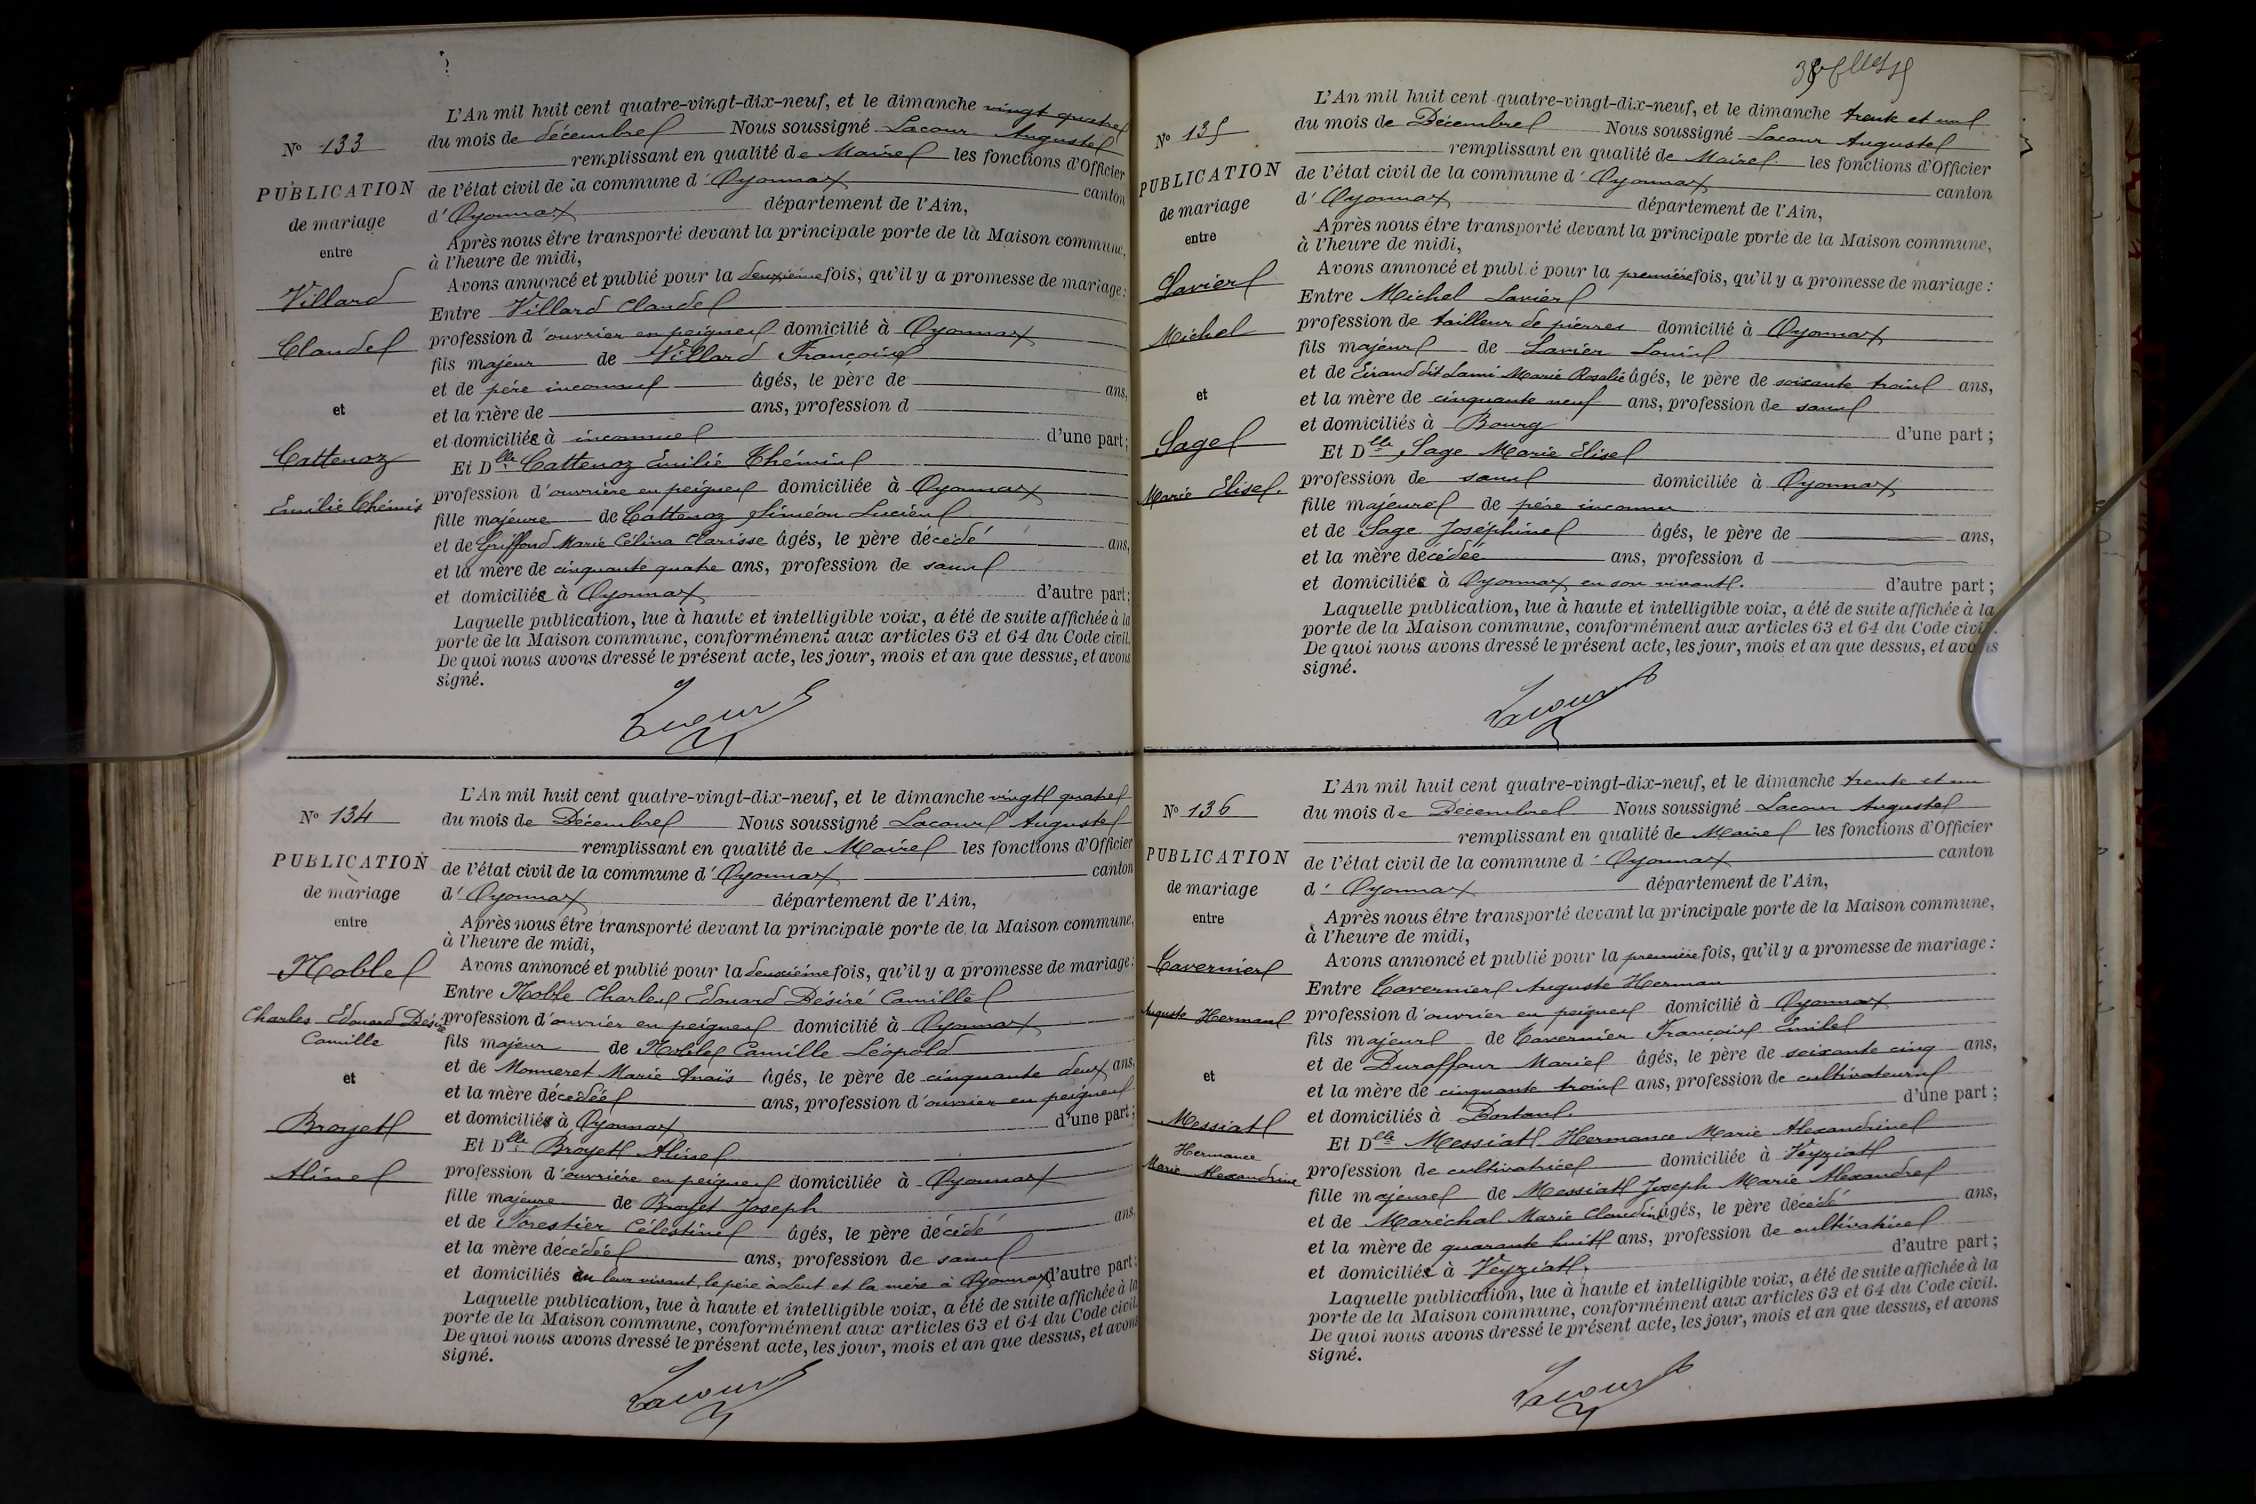 N° 133
PUBLICATION
de mariage
entre
Villard
Claude
et
Cattenoz
Emilie Thémis
L'An mil huit cent quatre-vingt-dix-neuf, et le dimanche vingt quatre
du mois de décembre Nous soussigné Lacour Auguste
remplissant en qualité de Maire les fonctions d'Officier
de l'état civil de la commune d'Oyonnax canton
d'Oyonnax département de l'Ain,
Après nous être transporté devant la principale porte de la Maison commune,
à l'heure de midi,
Avons annoncé et publié pour la deuxième fois, qu'il y a promesse de mariage :
Entre Villard Claude
profession d'ouvrier en peignes domicilié à Oyonnax
fils majeur de Villard Françoise
et de père inconnu âgés, le père de ans,
et la mère de ans, profession d
et domiciliés à inconnue d'une part ;
Et Dlle Cattenoz Emilie Thémis
profession d'ouvrière en peignes domiciliée à Oyonnax
fille majeure de Cattenoz Siméon Lucien
et de Griffond Marie Célina Clarisse âgés, le père décédé ans,
et la mère de cinquante quatre ans, profession de sans
et domiciliée à Oyonnax d'autre part ;
Laquelle publication, lue à haute et intelligible voix, a été de suite affichée à la
porte de la Maison commune, conformément aux articles 63 et 64 du Code civil.
De quoi nous avons dressé le présent acte, les jour, mois et an que dessus, et avons
signé.
Lacour
N° 134
PUBLICATION
de mariage
entre
Noble
Charles Edouard Désiré
Camille
et
Broyet
Aline
L'An mil huit cent quatre-vingt-dix-neuf, et le dimanche vingt quatre
du mois de Décembre Nous soussigné Lacour Auguste
remplissant en qualité de Maire les fonctions d'Officier
de l'état civil de la commune d'Oyonnax canton
d'Oyonnax département de l'Ain,
Après nous être transporté devant la principale porte de la Maison commune,
à l'heure de midi,
Avons annoncé et publié pour la deuxième fois, qu'il y a promesse de mariage :
Entre Noble Charles Edouard Désiré Camille
profession d'ouvrier en peignes domicilié à Oyonnax
fils majeur de Noble Camille Léopold
et de Monneret Marie Anaïs âgés, le père de cinquante deux ans,
et la mère décédée ans, profession d'ouvrier en peignes
et domiciliés à Oyonnax d'une part ;
Et Dlle Broyet Aline
profession d'ouvrière en peignes domiciliée à Oyonnax
fille majeure de Broyet Joseph
et de Forestier Célestine âgés, le père décédé ans,
et la mère décédée ans, profession de sans
et domiciliés en leur vivant, le père à Lent et la mère à Oyonnax d'autre part ;
Laquelle publication, lue à haute et intelligible voix, a été de suite affichée à la
porte de la Maison commune, conformément aux articles 63 et 64 du Code civil.
De quoi nous avons dressé le présent acte, les jour, mois et an que dessus, et avons
signé.
Lacour
N° 135
PUBLICATION
de mariage
entre
Lavier
Michel
et
Sage
Marie Elise.
L'An mil huit cent quatre-vingt-dix-neuf, et le dimanche trente et un
du mois de Décembre Nous soussigné Lacour Auguste
remplissant en qualité de Maire les fonctions d'Officier
de l'état civil de la commune d'Oyonnax canton
d'Oyonnax département de l'Ain,
Après nous être transporté devant la principale porte de la Maison commune,
à l'heure de midi,
Avons annoncé et publié pour la première fois, qu'il y a promesse de mariage :
Entre Michel Lavier
profession de tailleur de pierres domicilié à Oyonnax
fils majeur de Lavier Louis
et de Giraud dit Lami Marie Rosalie âgés, le père de soixante trois ans,
et la mère de cinquante neuf ans, profession de sans
et domiciliés à Bourg d'une part ;
Et Dlle Sage Marie Elise
profession de sans domiciliée à Oyonnax
fille majeure de père inconnu
et de Sage Joséphine âgés, le père de ans,
et la mère décédée ans, profession d
et domiciliée à Oyonnax en son vivant. d'autre part ;
Laquelle publication, lue à haute et intelligible voix, a été de suite affichée à la
porte de la Maison commune, conformément aux articles 63 et 64 du Code civil.
De quoi nous avons dressé le présent acte, les jour, mois et an que dessus, et avons
signé.
Lacour
N° 136
PUBLICATION
de mariage
entre
Tavernier
Auguste Herman
et
Messiat
Hermance
Marie Alexandrine
L'An mil huit cent quatre-vingt-dix-neuf, et le dimanche trente et un
du mois de Décembre Nous soussigné Lacour Auguste
remplissant en qualité de Maire les fonctions d'Officier
de l'état civil de la commune d'Oyonnax canton
d'Oyonnax département de l'Ain,
Après nous être transporté devant la principale porte de la Maison commune,
à l'heure de midi,
Avons annoncé et publié pour la première fois, qu'il y a promesse de mariage :
Entre Tavernier Auguste Herman
profession d'ouvrier en peignes domicilié à Oyonnax
fils majeur de Tavernier François Emile
et de Duraffour Marie âgés, le père de soixante cinq ans,
et la mère de cinquante trois ans, profession de cultivateurs
et domiciliés à Dortan. d'une part ;
Et Dlle Messiat Hermance Marie Alexandrine
profession de cultivatrice domiciliée à Veyziat
fille majeure de Messiat Joseph Marie Alexandre
et de Maréchal Marie Claudine âgés, le père décédé ans,
et la mère de quarante huit ans, profession de cultivatrice
et domiciliée à Veyziat. d'autre part ;
Laquelle publication, lue à haute et intelligible voix, a été de suite affichée à la
porte de la Maison commune, conformément aux articles 63 et 64 du Code civil.
De quoi nous avons dressé le présent acte, les jour, mois et an que dessus, et avons
signé.
Lacour